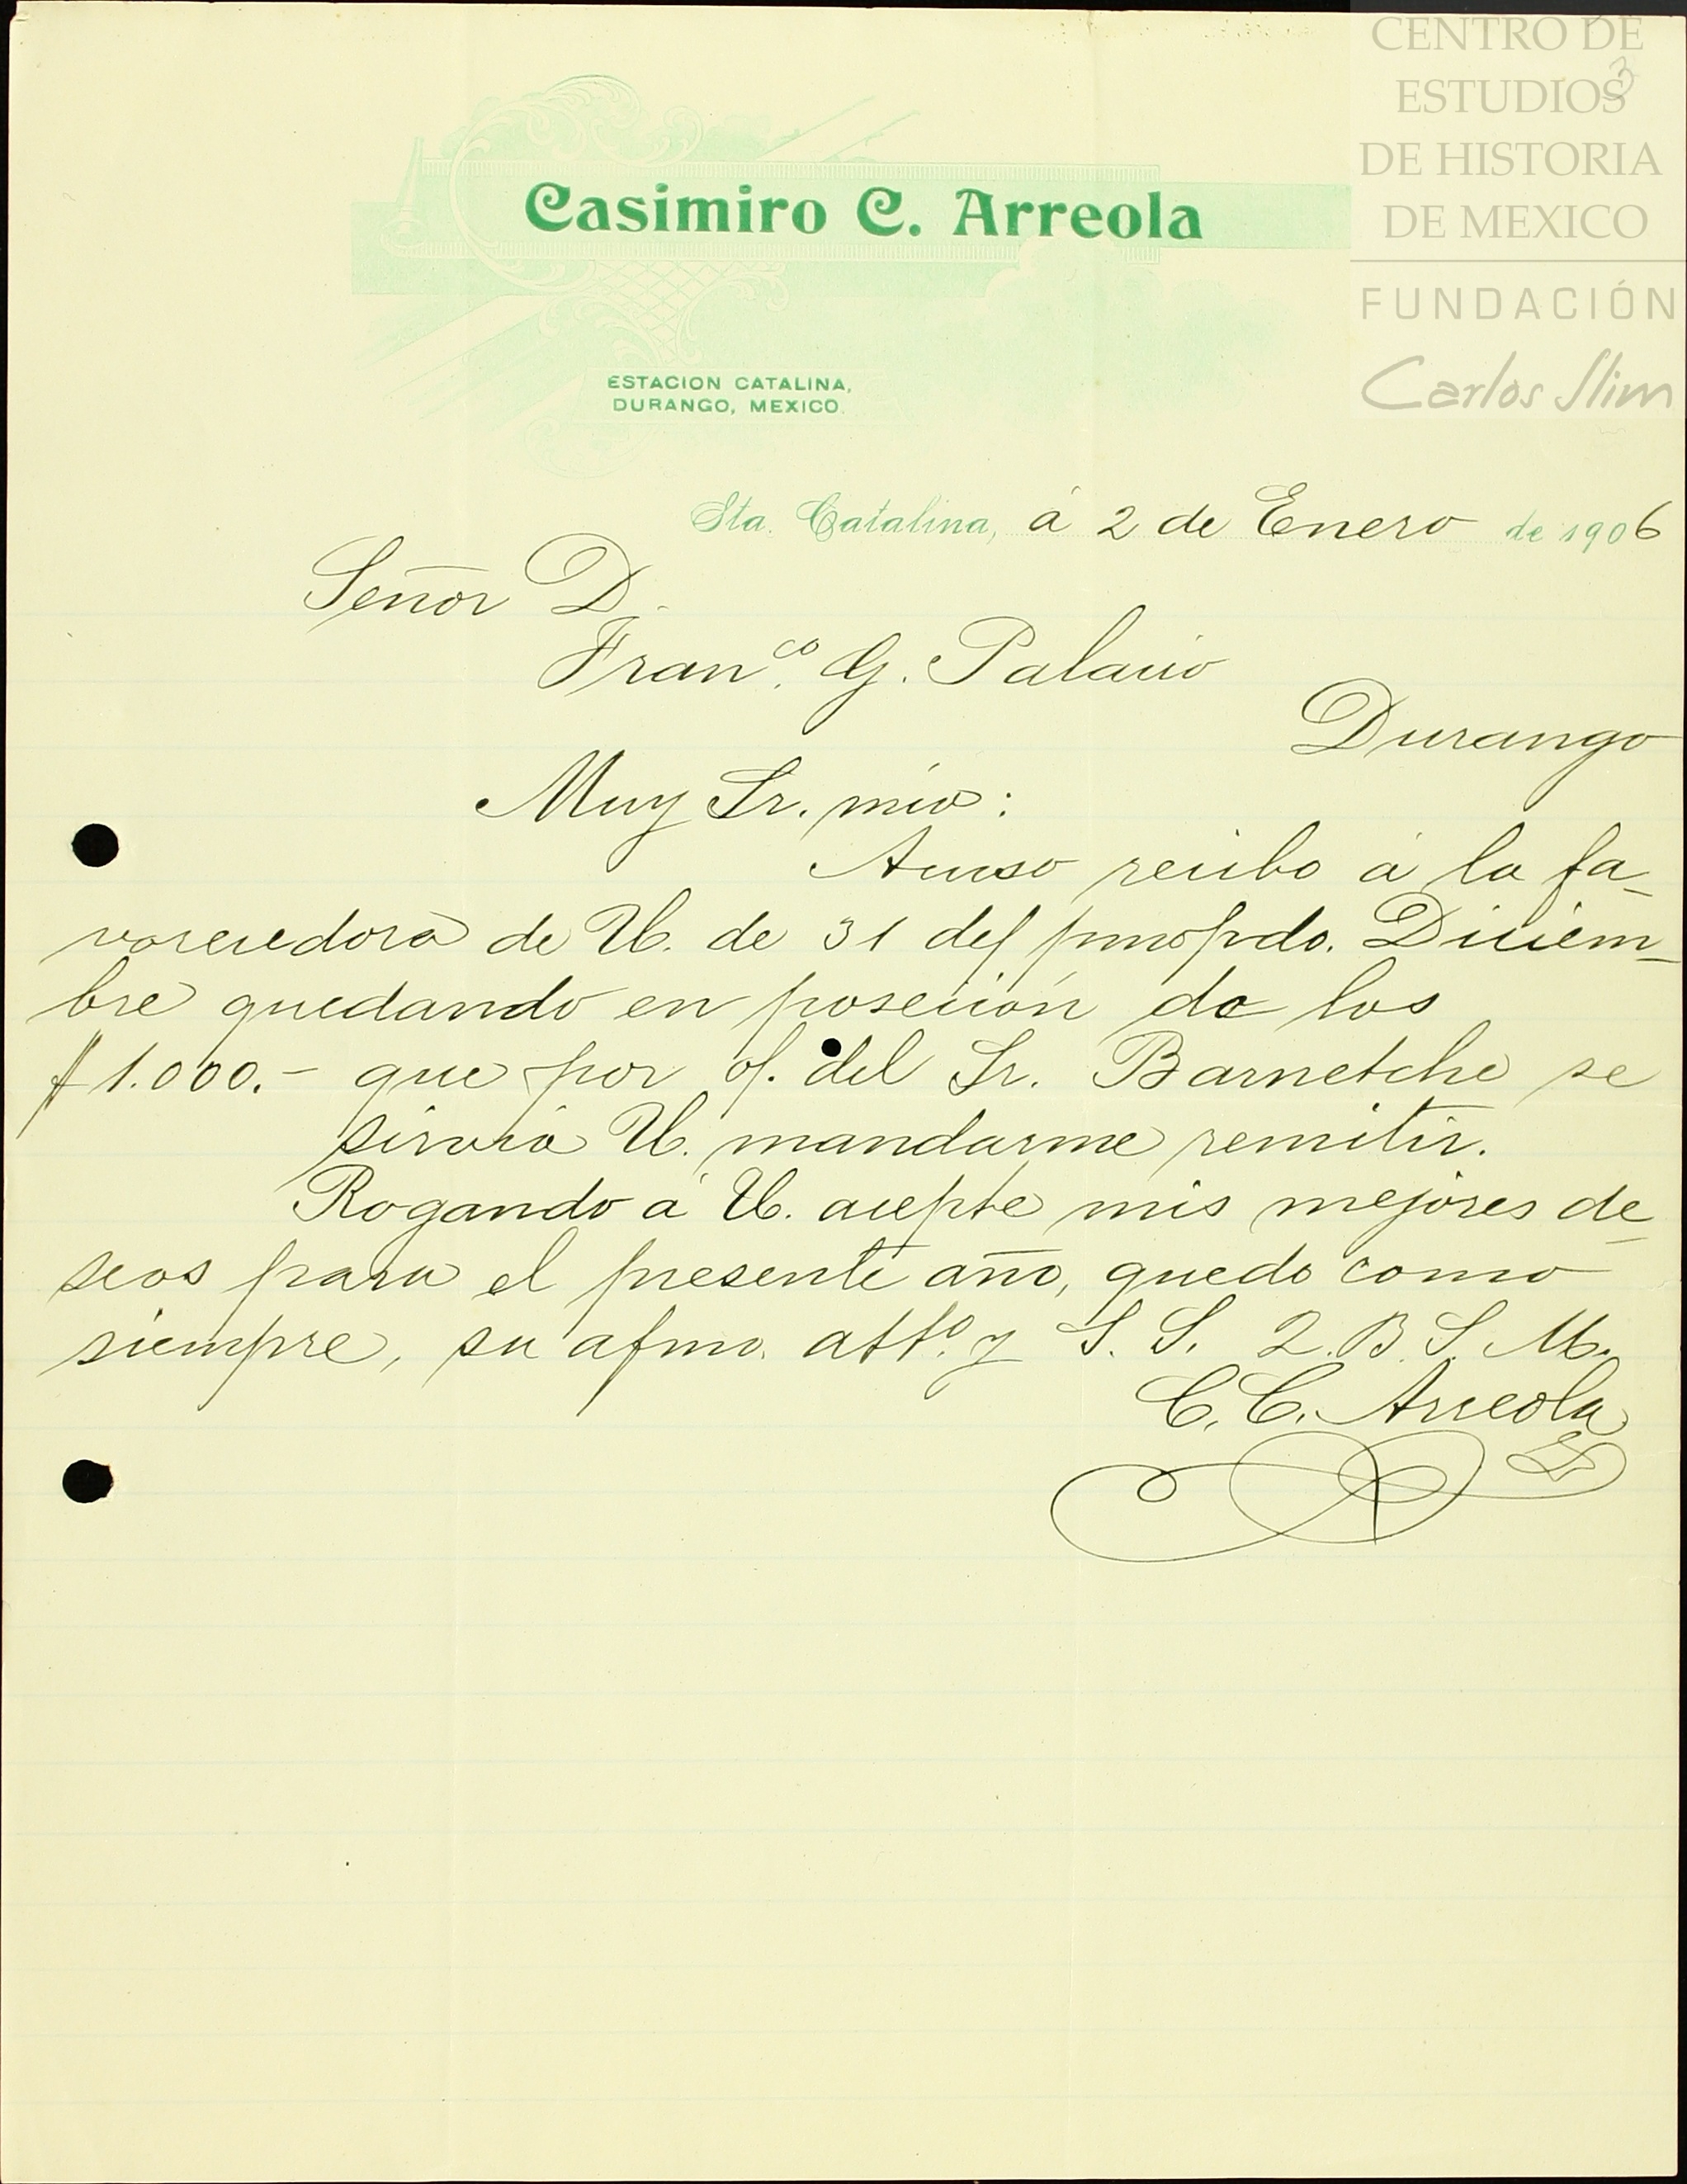 CENTRO DE
ESTUDIOS
DE HISTORIA
DE MEXICO
FUNDACIÓN
Carlos Slim
3
Casimiro C. Arreola
ESTACION CATALINA,
DURANGO, MEXICO.
Sta. Catalina, á 2 de Enero de 1906
Señor D.
Franco. G. Palacio
Durango
Muy Sr. mío:
Acuso recibo á la fa-
vorecedora de U. de 31 del pmopdo. Diciem-
bre quedando en poseción de los
$1.000.- que por o/. del Sr. Barnetche se
sirvió U. mandarme remitir.
Rogando á U. acepte mis mejores de-
seos para el presente año, quedo como
siempre, su afmo. atto. y S. S. Q. B. S. M.
C. C. Arreola